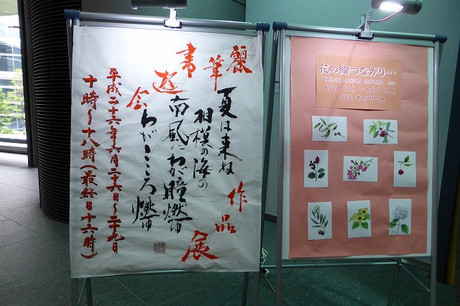 麗筆書遊会
作品展
夏は来ぬ
相模の海の
南風にわが瞳燃ゆ
わがこころ燃ゆ
平成二十六年六月二十六日〜二十九日
十時〜十八時(最終日十六時)
花の絵つながり…